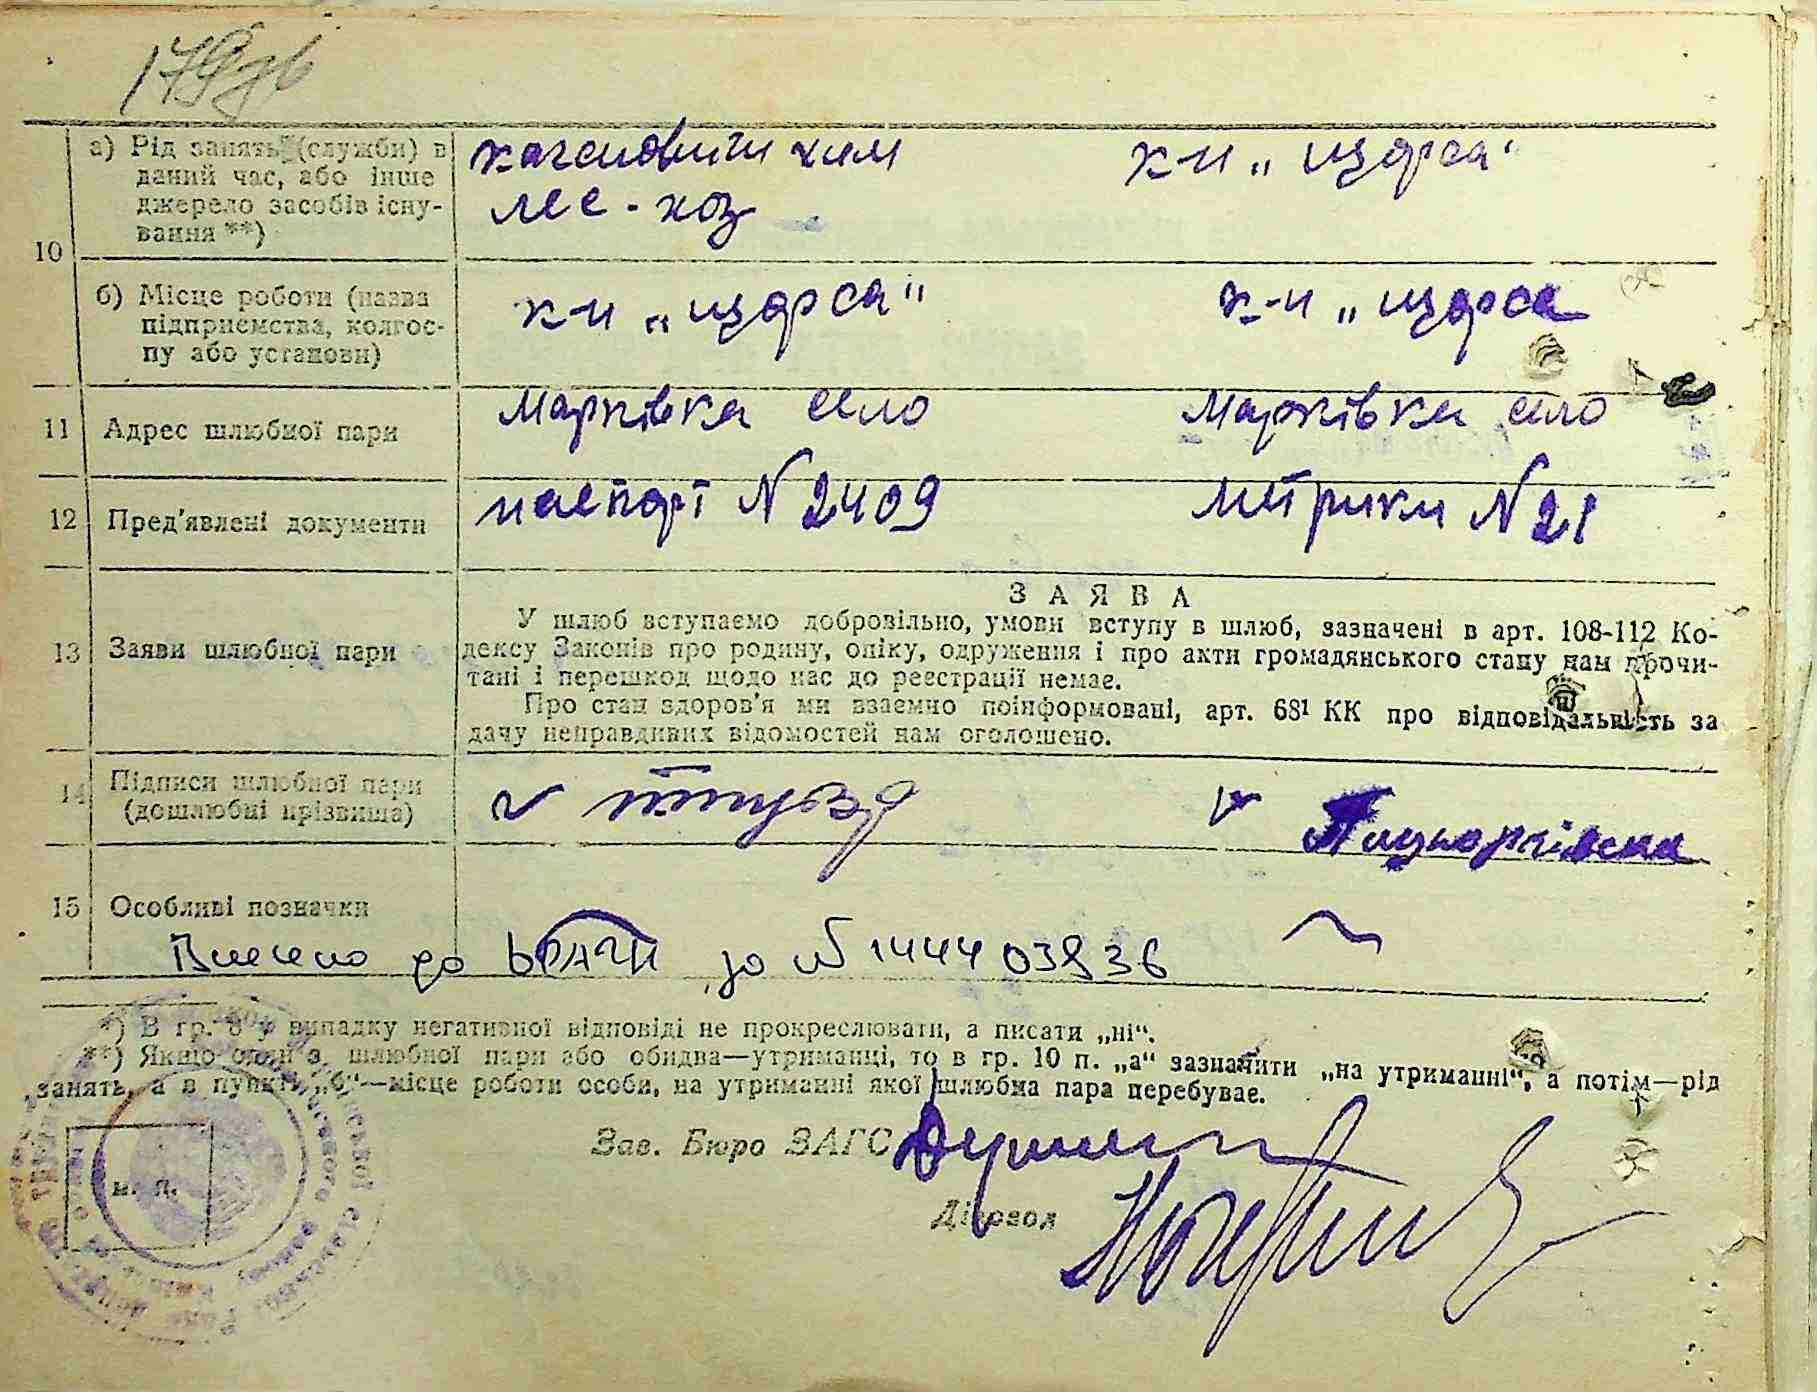 179
а) Рід занять (служби) в
даний час, або інше
джерело засобів існу-
вання **)
лес-хоз
к-п „Щорса“
10
б) Місце роботи (назва
підприємства, колгос-
пу або установи)
к-п „Щорса“
к-п „Щорса
11 Адрес шлюбної пари Марківка село Марківка село
12 Пред’явлені документи паспорт N 2409 метрики N 21
13 Заяви шлюбної пари
ЗАЯВА
У шлюб вступаємо добровільно, умови вступу в шлюб, зазначені в арт. 108-112 Ко-
дексу Законів про родину, опіку, одруження і про акти громадянського стану нам прочи-
тані і перешкод щодо нас до реєстрації немає.
Про стан здоров’я ми взаємно поінформовані, арт. 68¹ КК про відповідальність за
дачу неправдивих відомостей нам оголошено.
14 Підписи шлюбної пари
(дошлюбні прізвища)
15 Особливі позначки
Внесено до ДРАЦС за №
*) В гр. 8 у випадку негативної відповіді не прокреслювати, а писати „ні“.
**) Якщо один з шлюбної пари або обидва—утриманці, то в гр. 10 п. „а“ зазначити „на утриманні“, а потім—рід
занять, а в пункті „б“—місце роботи особи, на утриманні якої шлюбна пара перебуває.
Зав. Бюро ЗАГС
Діловод
м. п.